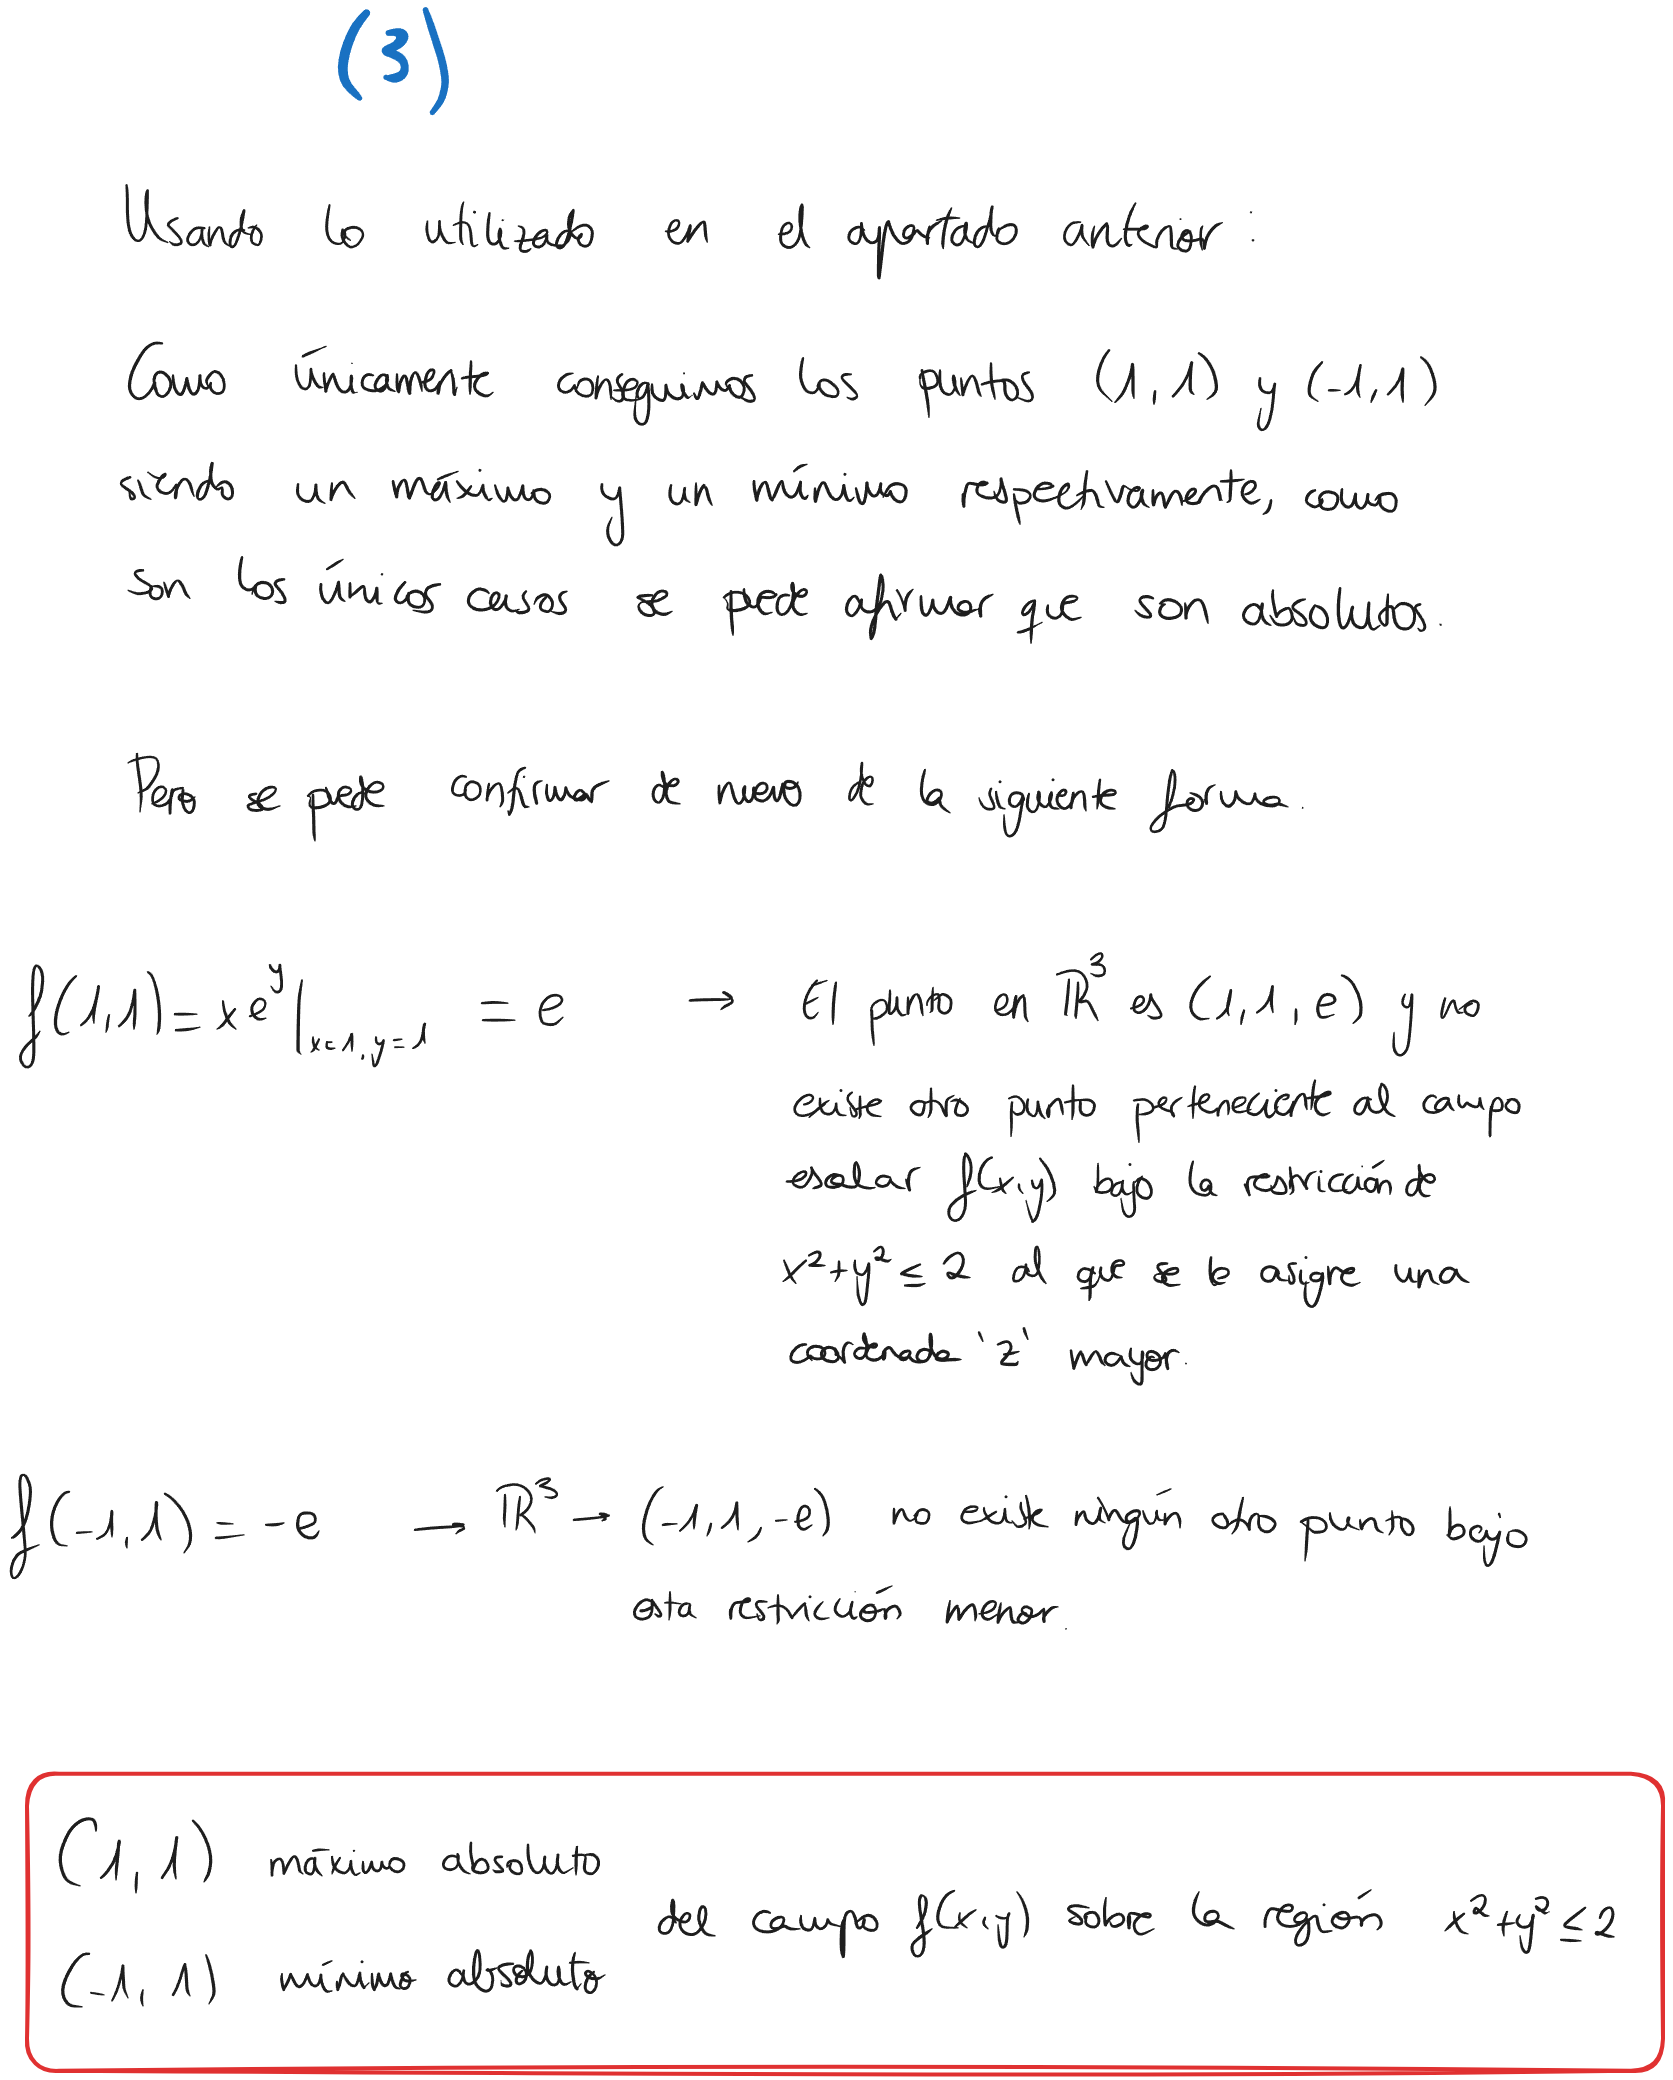 (3)
Usando lo utilizado en el apartado anterior:
Como únicamente conseguimos los puntos (1,1) y (-1,1)
siendo un máximo y un mínimo respectivamente, como
son los únicos casos se puede afirmar que son absolutos.
Pero se puede confirmar de nuevo de la siguiente forma.
f(1,1) = xe^y |_{x=1, y=1} = e → El punto en ℝ³ es (1,1,e) y no
existe otro punto perteneciente al campo
escalar f(x,y) bajo la restricción de
x²+y² ≤ 2 al que se le asigne una
coordenada 'z' mayor.
f(-1,1) = -e → ℝ³ → (-1,1,-e) no existe ningún otro punto bajo
esta restricción menor.
(1,1) máximo absoluto
del campo f(x,y) sobre la región x²+y² ≤ 2
(-1,1) mínimo absoluto